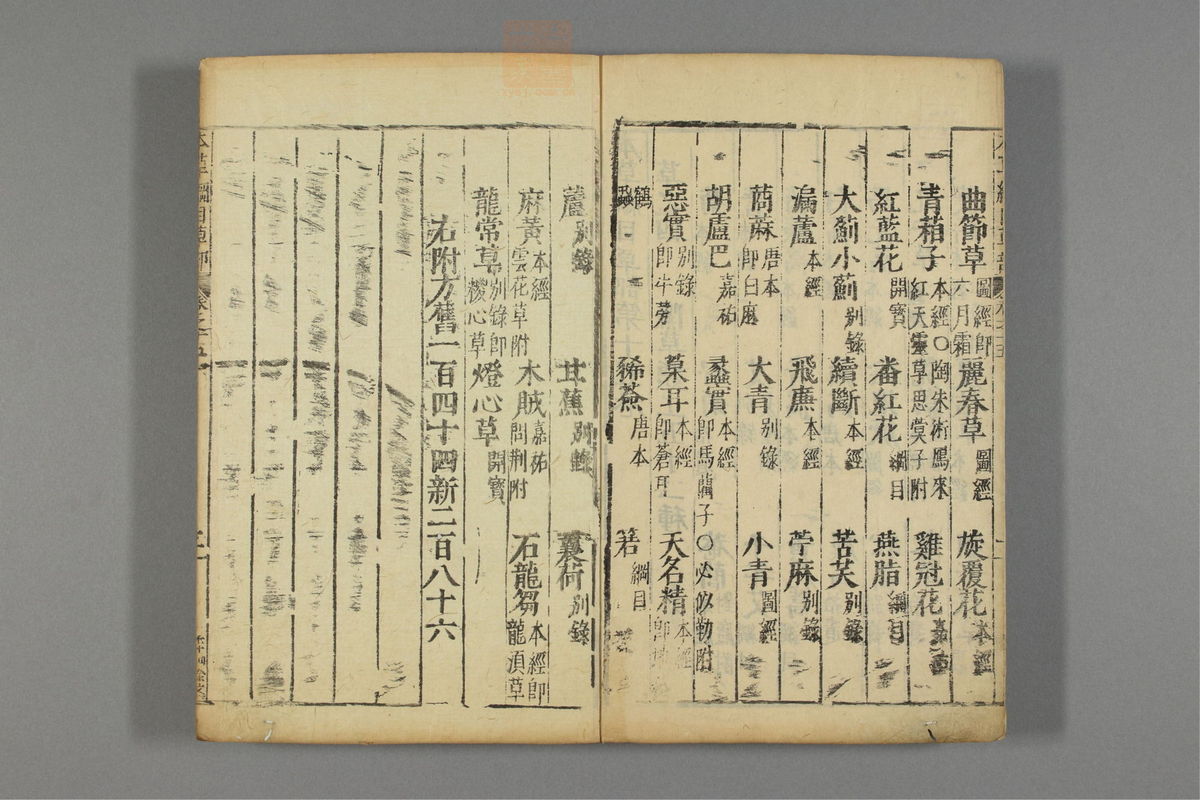 曲節草圖經即六月霜 麗春草圖經 旋覆花本經
青葙子本經○陶朱術鴈來紅天靈草思蓂子附 雞冠花嘉
紅藍花開寶 番紅花綱目 燕脂綱目
大薊小薊别錄 續斷本經 苦芺别錄
漏蘆本經 飛廉本經 苧麻别錄
茼蔴唐本即白麻 大青别錄 小青圖經
胡盧巴嘉祐 蠡實本經即馬藺子○必似勒附
惡實别錄即牛蒡 葈耳本經即蒼耳 天名精本經即
鶴蝨 豨薟唐本 箬綱目
蘆别錄 甘蕉别錄 蘘荷别錄
麻黃本經雲花草附 木賊嘉祐問荆附 石龍芻本經即龍湏草
龍常草别錄即糉心草 燈心草開寶
右附方舊一百四十四新二百八十六